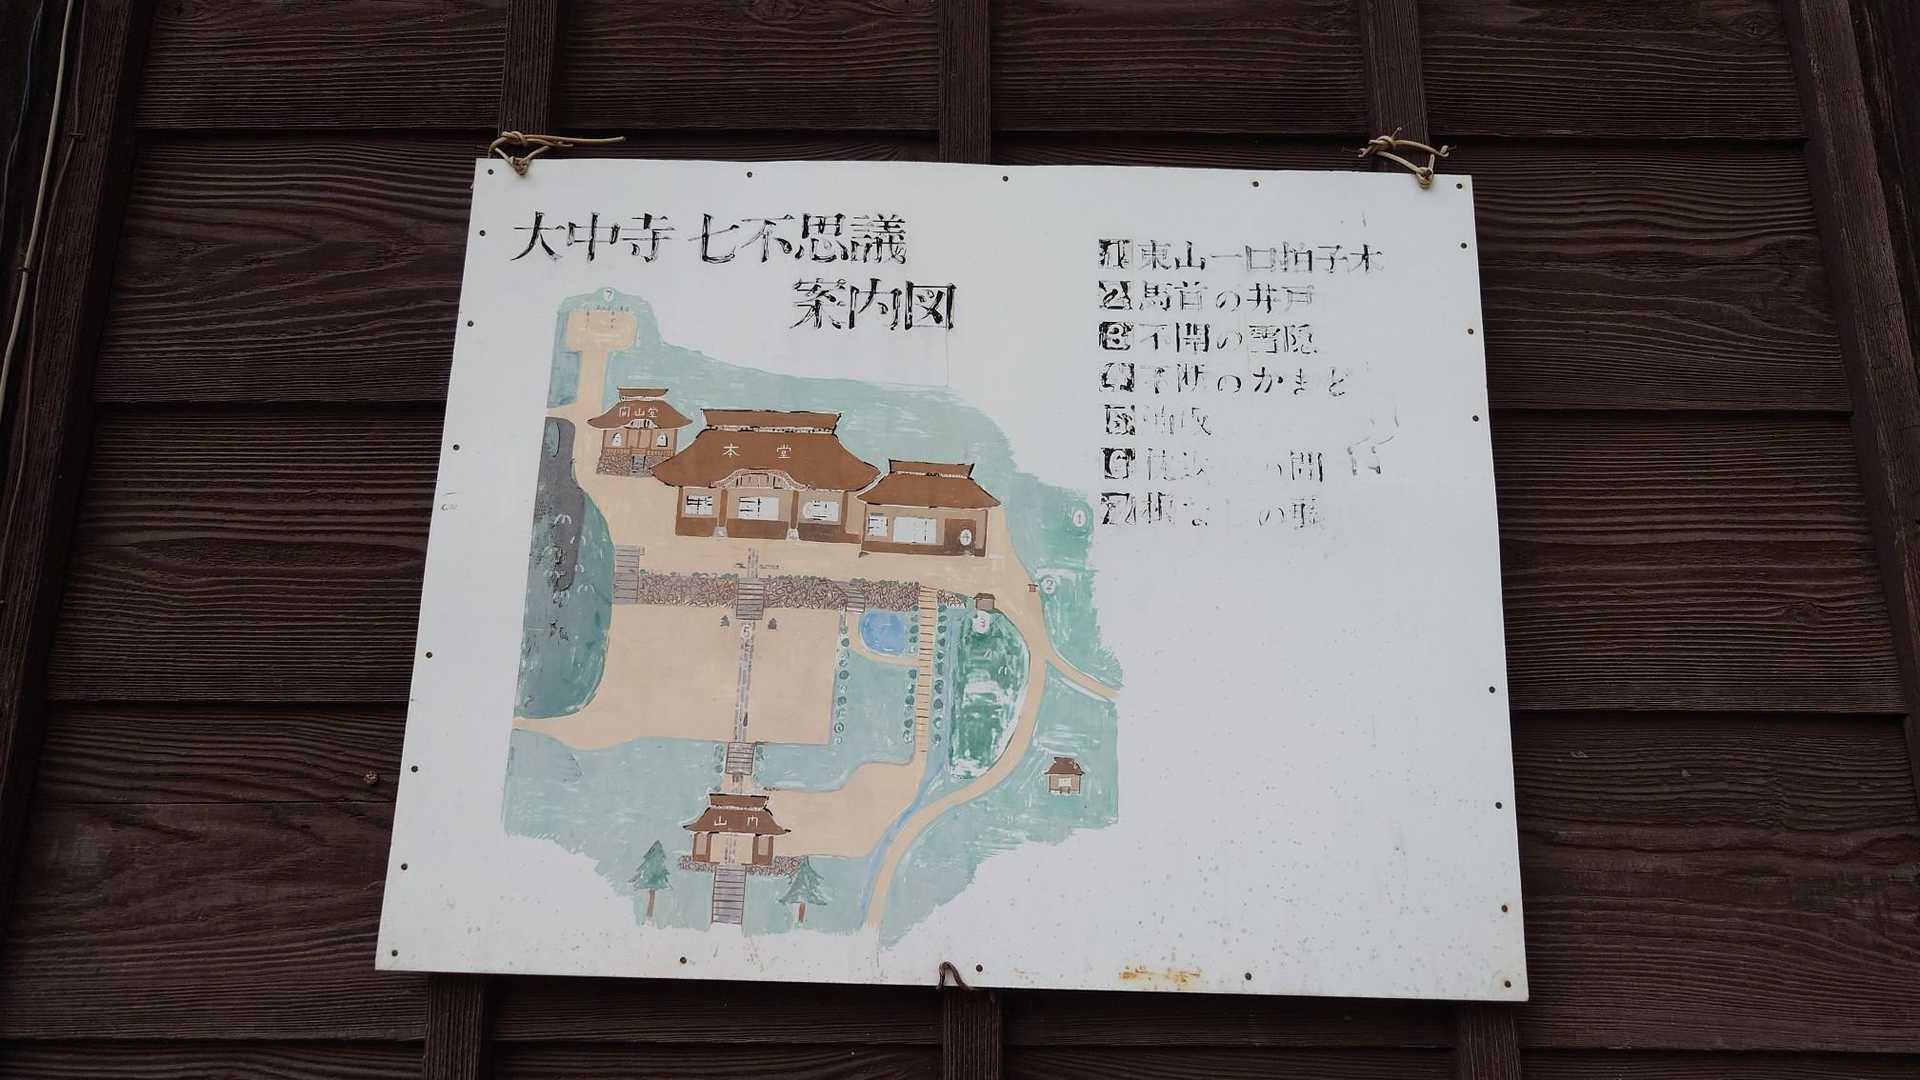 大中寺 七不思議
案内図
1 東山一口拍子木
2 馬首の井戸
3 不開の雪隠
4 不断のかまど
5 油坂
6 の間
7 根なしの藤
7
開山堂
本堂
1
2
3
5
山門